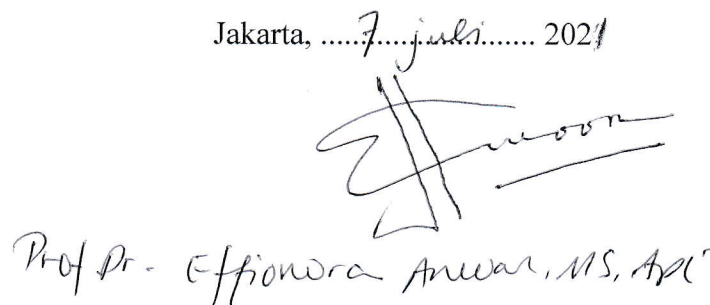 Jakarta, .....7....juli.......... 2021
Prof Dr. Effionora Anwar, MS, Apt